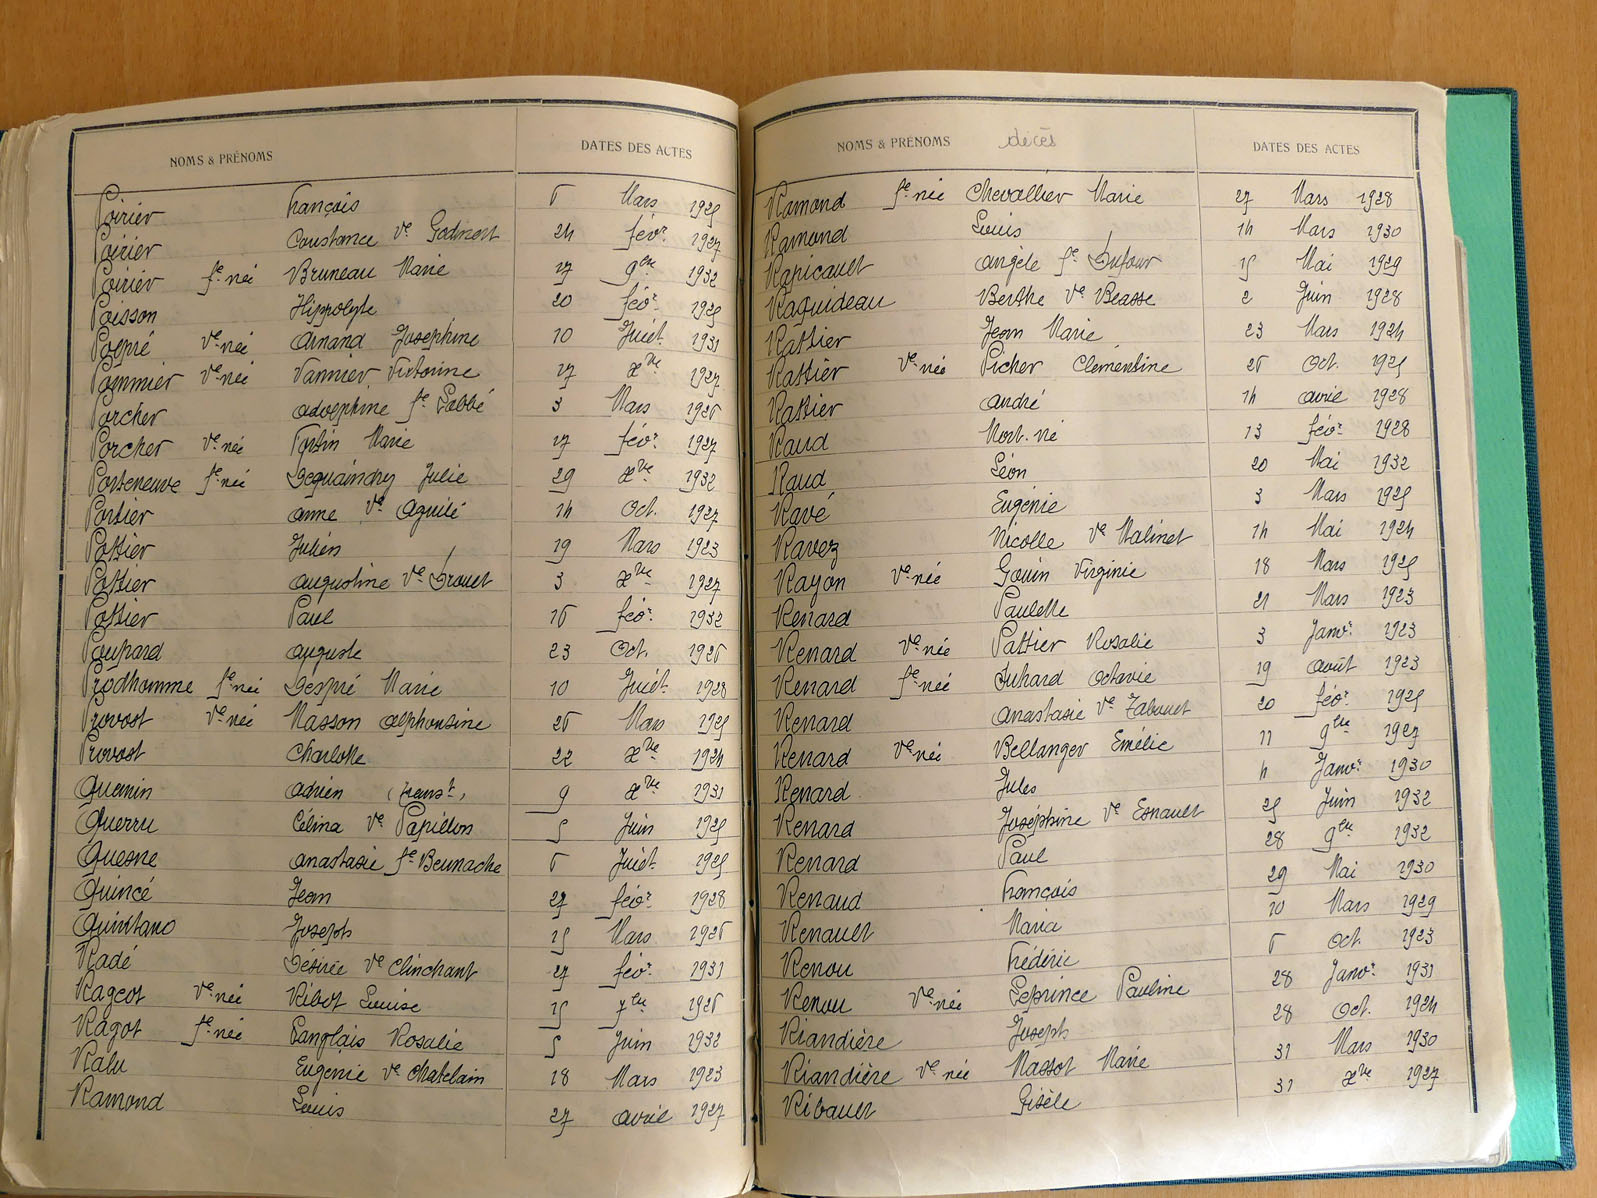 NOMS & PRÉNOMS DATES DES ACTES
Poirier François 6 Mars 1925
Poirier Constance Ve Godmert 24 févr 1927
Poirier fe née Bruneau Marie 17 9bre 1932
Poisson Hippolyte 20 févr 1925
Poepré Ve née Arnand Joséphine 10 Juiet 1931
Pommier Ve née Vannier Victorine 17 Xbre 1927
Porcher Adolphine fe Labbé 3 Mars 1926
Porcher Ve née Fortin Marie 17 févr 1927
Porteneuve fe née Dequaindry Julie 29 Xbre 1932
Portier Anne Ve Aguilé 14 Oct. 1927
Pottier Julien 19 Mars 1923
Pottier Augustine Ve Drouet 3 Xbre 1927
Pottier Paul 16 févr 1932
Poupard Auguste 23 Oct. 1926
Prodhomme fe née Despré Marie 10 Juiet 1928
Provost Ve née Masson Alphonsine 26 Mars 1925
Provost Charlotte 22 Xbre 1924
Quemin Adrien (transt) 9 Xbre 1931
Querru Célina Ve Papillon 5 Juin 1925
Quesne Anastasie fe Beunache 6 Juiet 1925
Quincé Jean 27 févr 1928
Quintano Joseph 15 Mars 1926
Radé Désirée Ve Clinchant 27 févr 1931
Rageot Ve née Ribot Louise 15 7bre 1926
Ragot fe née Langlais Rosalie 5 Juin 1932
Ralu Eugenie Ve Chatelain 18 Mars 1923
Ramond Louis 27 avril 1927
NOMS & PRÉNOMS décès DATES DES ACTES
Ramond fe née Chevallier Marie 27 Mars 1928
Ramond Louis 14 Mars 1930
Rapicault Angèle fe Dufour 15 Mai 1929
Raquideau Berthe Ve Beasse 2 Juin 1928
Rattier Jean Marie 23 Mars 1924
Rattier Ve née Picher Clémentine 26 Oct. 1925
Rattier André 14 avril 1928
Raud Mort-né 13 févr 1928
Raud Léon 20 Mai 1932
Ravé Eugénie 3 Mars 1925
Ravez Nicolle Ve Malinet 14 Mai 1924
Rayon Ve née Gouin Virginie 18 Mars 1925
Renard Paulette 21 Mars 1923
Renard Ve née Pattier Rosalie 3 Janvr 1923
Renard fe née Juhard Octavie 19 août 1923
Renard Anastasie Ve Zabouet 20 févr 1925
Renard Ve née Bellanger Emélie 11 9bre 1927
Renard Jules 4 Janvr 1930
Renard Joséphine Ve Esnault 25 Juin 1932
Renard Paul 28 9bre 1932
Renaud François 29 Mai 1930
Renault Maria 10 Mars 1929
Renou Frédéric 6 Oct. 1923
Renou Ve née Leprince Pauline 28 Janvr 1931
Riandière Joseph 28 Oct. 1924
Riandière Ve née Massot Marie 31 Mars 1930
Ribault Gisèle 31 Xbre 1927